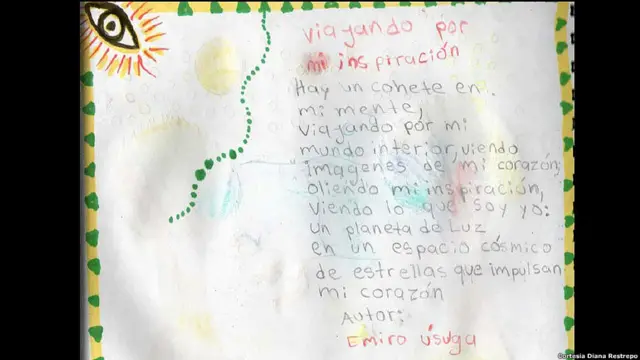 viajando por
mi inspiración
Hay un cohete en.
mi mente,
viajando por mi
mundo interior, viendo
imagenes de mi corazón;
oliendo mi inspiración,
viendo lo que soy yo:
un planeta de Luz
en un espacio cósmico
de estrellas que impulsan
mi corazón
Autor:
Emiro úsuga
Cortesía Diana Restrepo